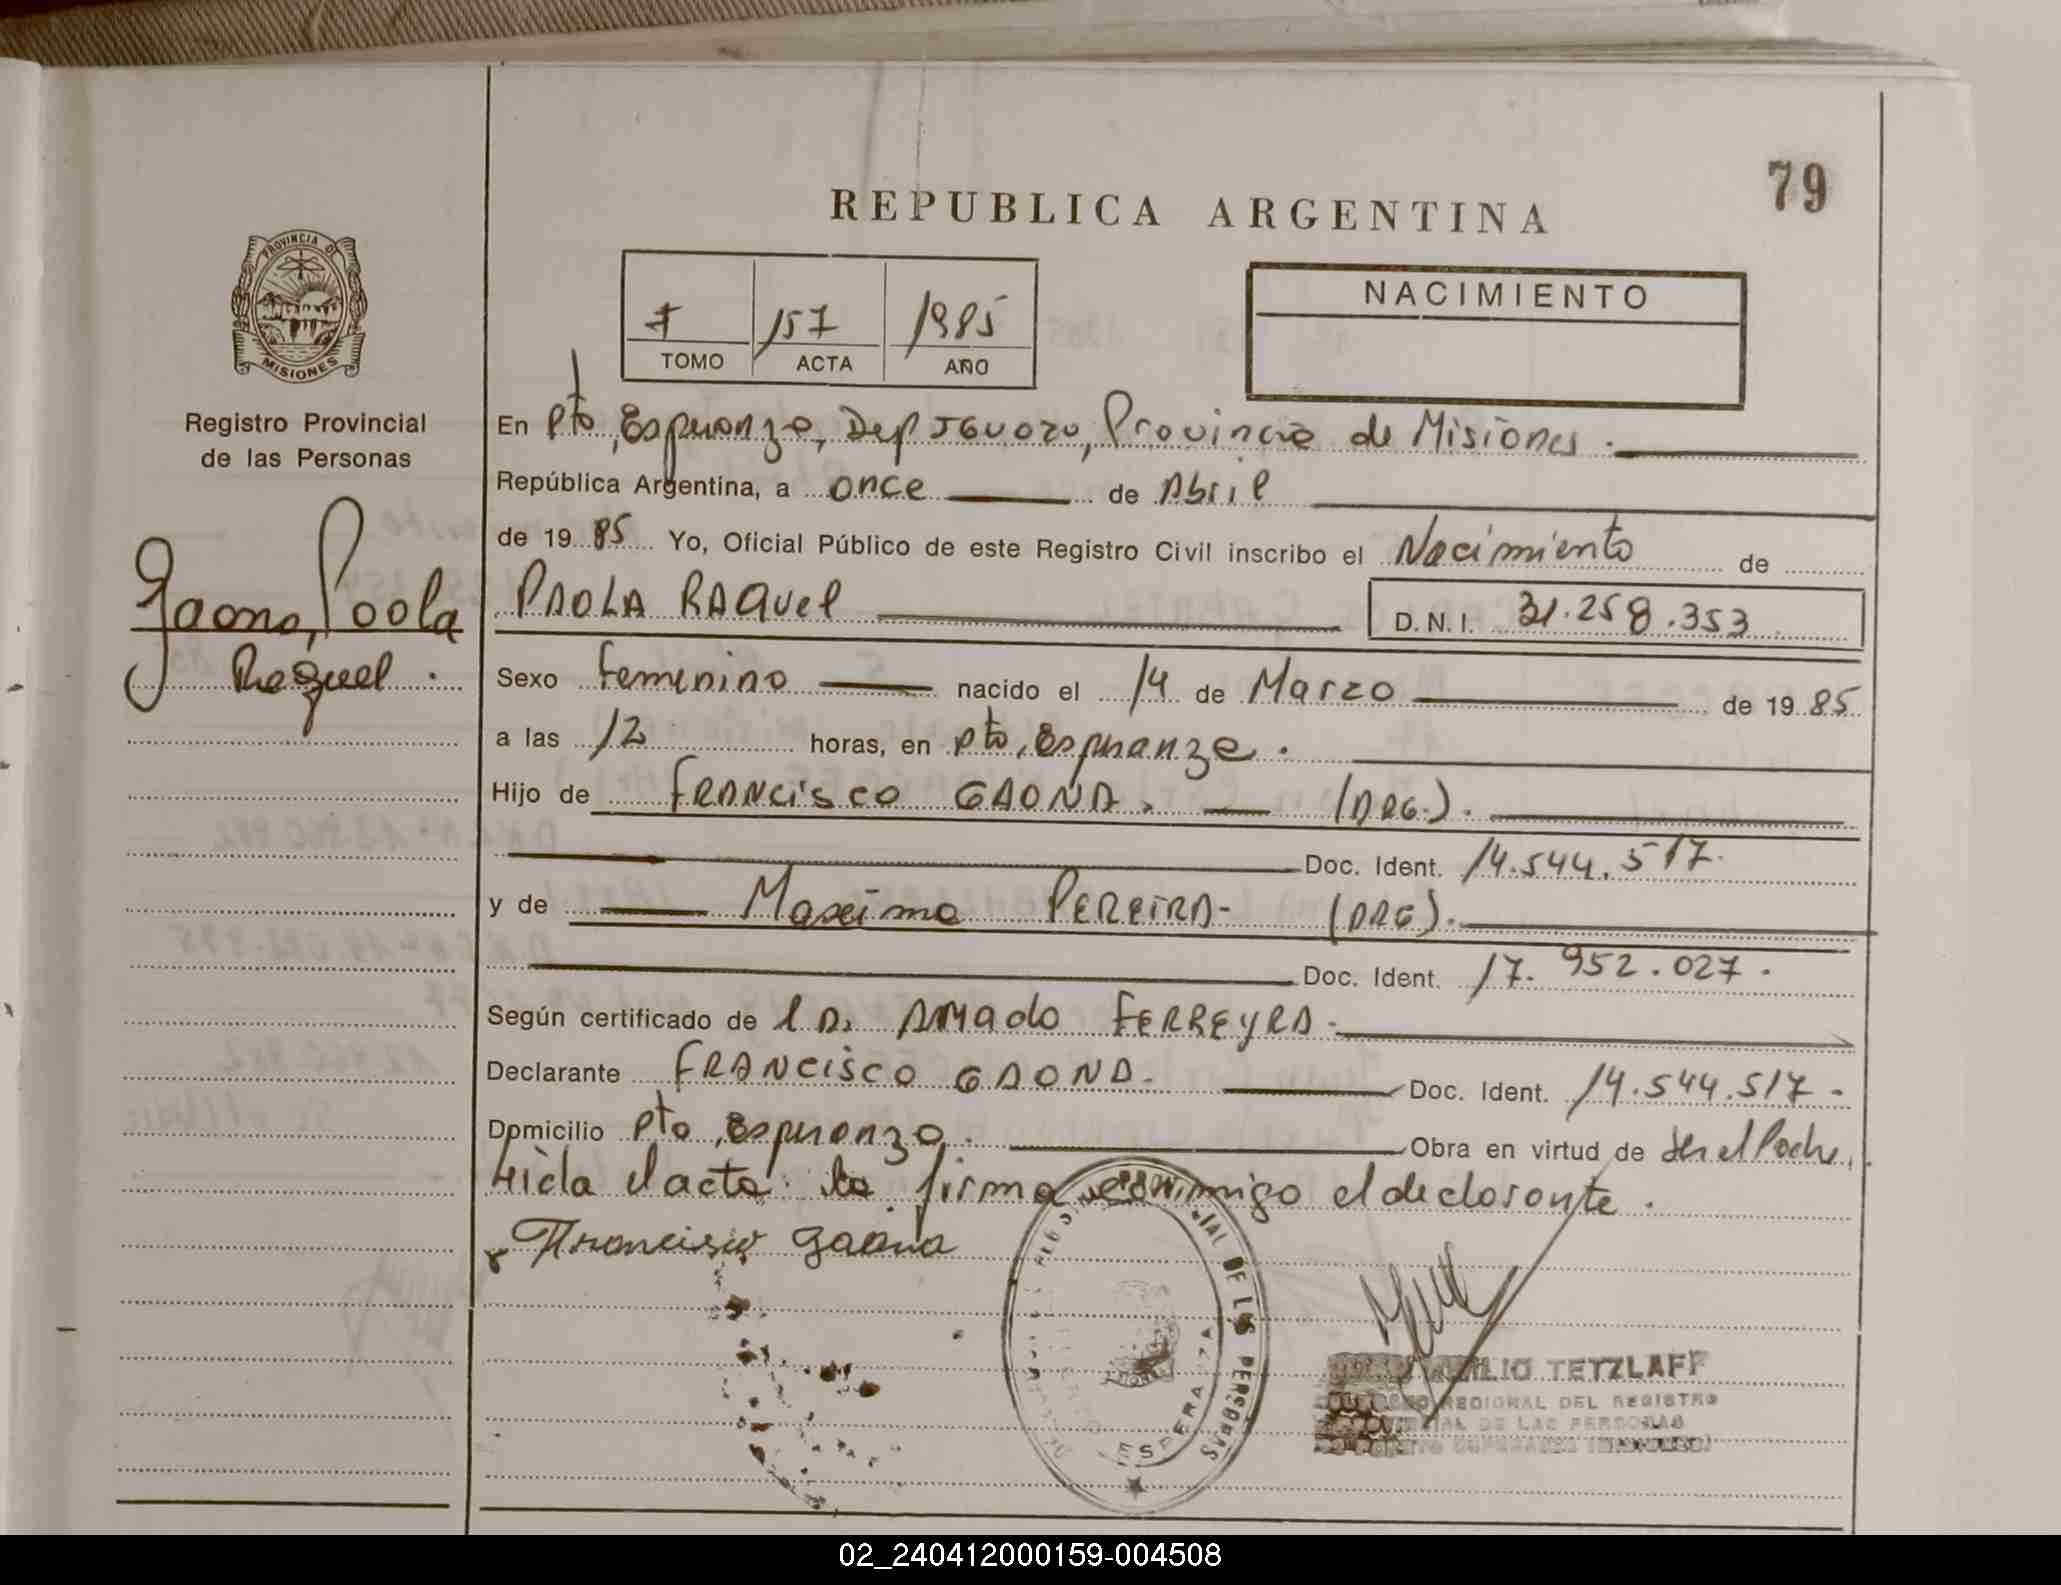 79
REPUBLICA ARGENTINA
PROVINCIA DE
MISIONES
Registro Provincial
de las Personas
Gaona, Paola
Raquel.
7 157 1985
TOMO ACTA AÑO
NACIMIENTO
En Pto, Esperanza, Dep Iguazu, Provincia de Misiones.
República Argentina, a once de Abril
de 1985 Yo, Oficial Público de este Registro Civil inscribo el Nacimiento de
PAOLA RAQUEL D.N.I. 31.258.353
Sexo Femenino nacido el 14 de Marzo de 1985
a las 12 horas, en Pto, Esperanza.
Hijo de FRANCISCO GAONA. (ARG.).
Doc. Ident. 14.544.517.
y de Maxima PEREIRA- (ARG).
Doc. Ident. 17.952.027.
Según certificado de AMADO FERREYRA-
Declarante FRANCISCO GAONA- Doc. Ident. 14.544.517-
Domicilio Pto, Esperanza. Obra en virtud de ser el Padre,
leida el acta la firma conmigo el declarante.
Francisco Gaona
DE LOS PERSONAS
ESPERANZA
EMILIO TETZLAFF
REGIONAL DEL REGISTRO
DE LAS PERSONAS
02_240412000159-004508